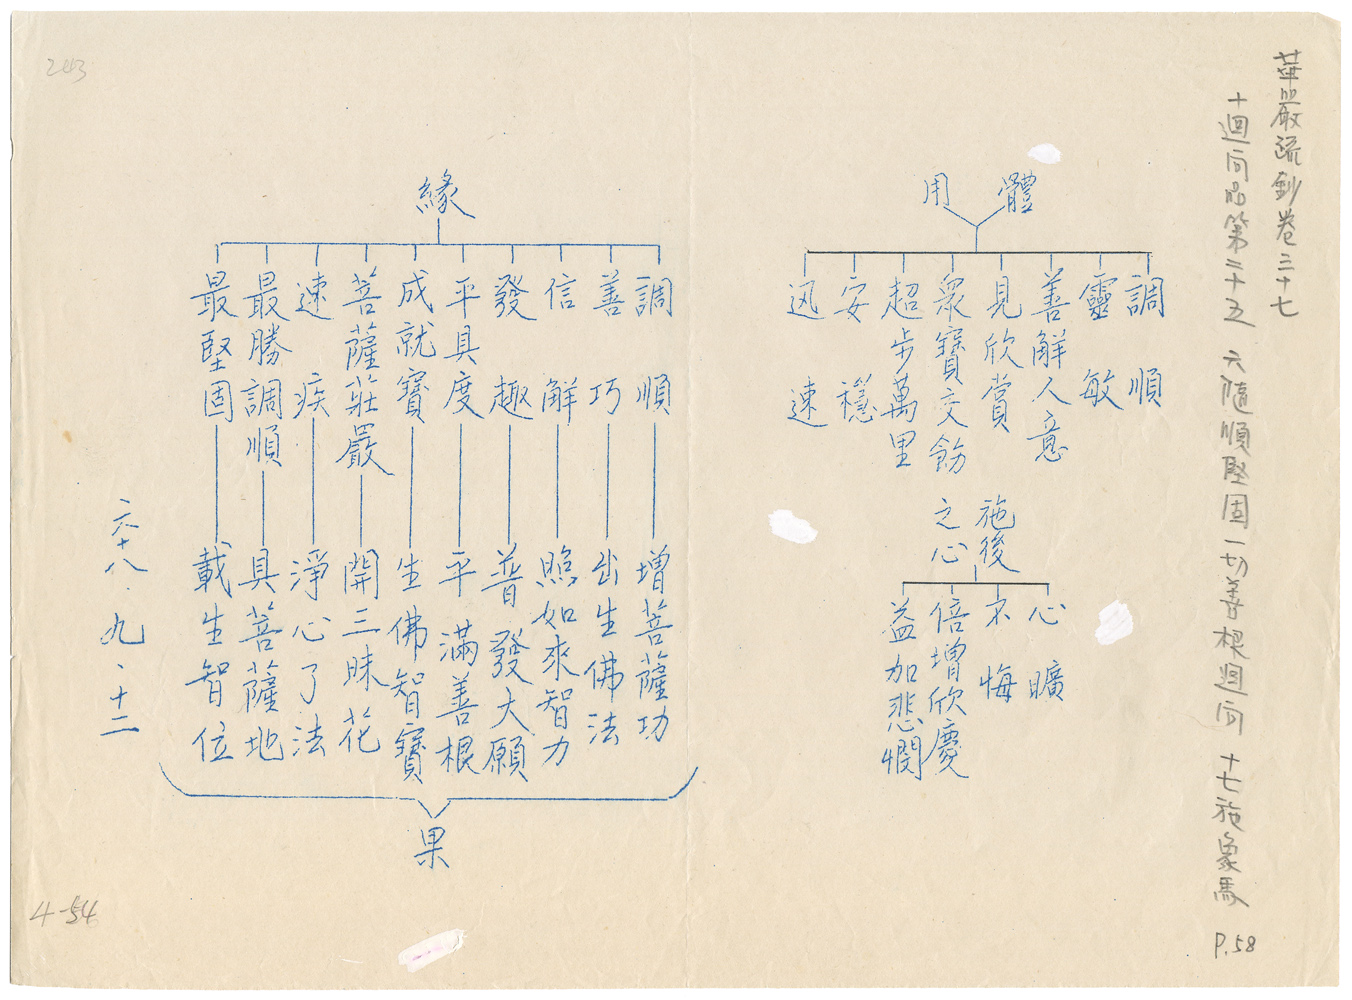 華嚴疏鈔卷三十七
十迴向品第二十五　六隨順堅固一切善根迴向　十七施象馬　P.58
體
用
調順
靈敏
善解人意
見欣賞
衆寶交飾
超步萬里
安穩
迅速
施後
之心
心曠
不悔
倍增欣慶
益加悲憫
緣
調順　增菩薩功
善巧　出生佛法
信解　照如來智力
發趣　普發大願
平具度　平滿善根
成就寶　生佛智寶
菩薩莊嚴　開三昧花
速疾　淨心了法
最勝調順　具菩薩地
最堅固　載生智位
果
六十八．九．十二
243
4-54